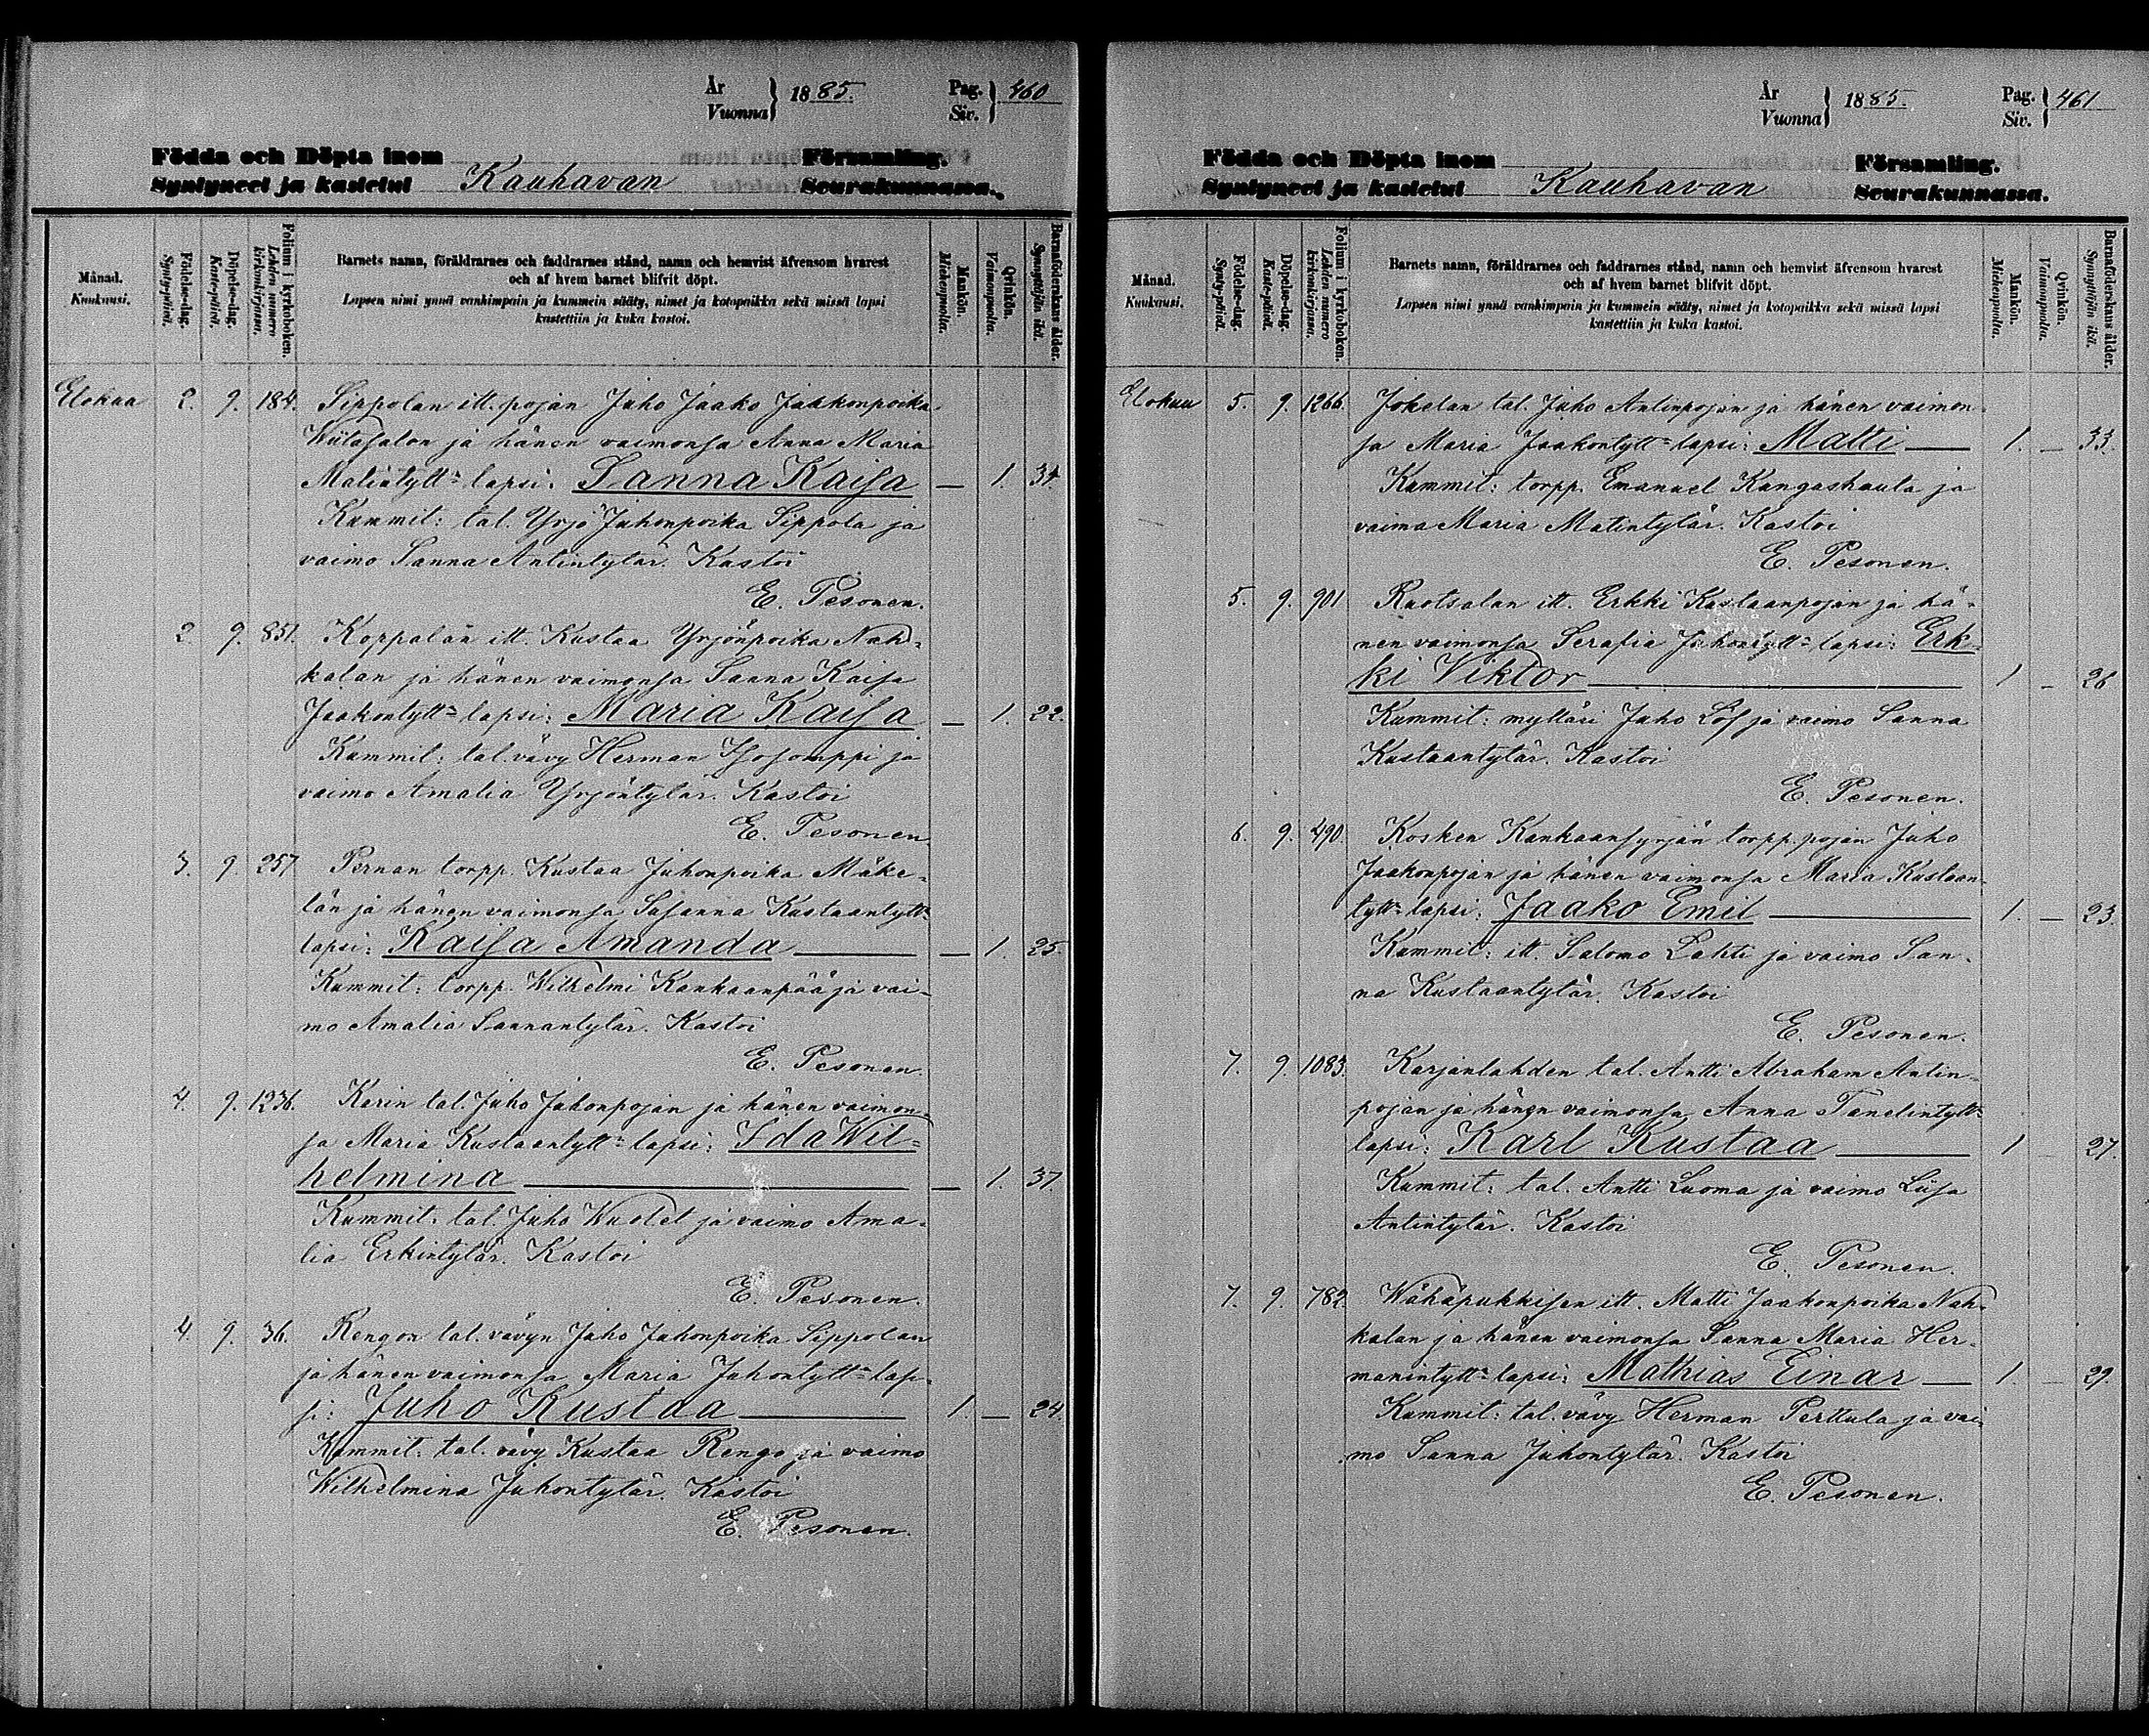 År
Vuonna } 1885.
Pag.
Siv. } 460
Födda och Döpta inom Församling.
Syntyneet ja kastetut Kauhavan Seurakunnassa.
Månad.
Kuukausi.
Födelse-dag.
Synty-päivä.
Döpelse-dag.
Kaste-päivä.
Folium i kyrkoboken.
Lehden numero kirkonkirjassa.
Barnets namn, föräldrarnes och faddrarnes stånd, namn och hemvist äfvensom hvarest
och af hvem barnet blifvit döpt.
Lapsen nimi ynnä vanhimpain ja kummein sääty, nimet ja kotopaikka sekä missä lapsi
kastettiin ja kuka kastoi.
Mankön.
Miehenpuolta.
Qvinkön.
Vaimonpuolta.
Barnaföderskans ålder.
Synnyttäjän ikä.
Elokuu 2. 9. 184. Sippolan itt. pojan Juho Jaako Jaakkonpoika
Wiitasalon ja hänen vaimonsa Anna Maria
Matintytt= lapsi: Sanna Kaisa — 1. 34.
Kummit: tal. Yrjö Juhonpoika Sippola ja
vaimo Sanna Antintytär. Kastoi
E. Pesonen.
2. 9. 851. Koppalan itt. Kustaa Yrjönpoika Nah=
kalan ja hänen vaimonsa Sanna Kaisa
Jaakontytt= lapsi: Maria Kaisa — 1. 22.
Kummit: tal. vävy Herman Isosomppi ja
vaimo Amalia Yrjöntytär. Kastoi
E. Pesonen
3. 9. 257 Pernan torpp. Kustaa Juhonpoika Mäke=
län ja hänen vaimonsa Susanna Kustaantytt=
lapsi: Kaisa Amanda — 1. 25.
Kummit: torpp. Wilhelmi Kankaanpää ja vai=
mo Amalia Sannantytär. Kastoi
E. Pesonen.
4. 9. 1236. Karin tal. Juho Juhonpojan ja hänen vaimon=
sa Maria Kustaantytt= lapsi: Ida Wil=
helmina — 1. 37.
Kummit: tal. Juho Wuolet ja vaimo Ama=
lia Erkintytär. Kastoi
E. Pesonen.
4. 9. 36. Rengon tal. vävyn Juho Juhonpoika Sippolan
ja hänen vaimonsa Maria Juhontytt= lap=
si: Juho Kustaa 1. — 24.
Kummit: tal. vävy Kustaa Rengo ja vaimo
Wilhelmina Juhontytär. Kastoi
E. Pesonen.
År
Vuonna } 1885.
Pag.
Siv. } 461
Födda och Döpta inom Församling.
Syntyneet ja kastetut Kauhavan Seurakunnassa.
Månad.
Kuukausi.
Födelse-dag.
Synty-päivä.
Döpelse-dag.
Kaste-päivä.
Folium i kyrkoboken.
Lehden numero kirkonkirjassa.
Barnets namn, föräldrarnes och faddrarnes stånd, namn och hemvist äfvensom hvarest
och af hvem barnet blifvit döpt.
Lapsen nimi ynnä vanhimpain ja kummein sääty, nimet ja kotopaikka sekä missä lapsi
kastettiin ja kuka kastoi.
Mankön.
Miehenpuolta.
Qvinkön.
Vaimonpuolta.
Barnaföderskans ålder.
Synnyttäjän ikä.
Elokuu 5. 9. 1266. Jokelan tal. Juho Antinpojan ja hänen vaimon=
sa Maria Jaakontytt= lapsi: Matti 1. — 33.
Kummit: torpp. Emanuel Kangashauta ja
vaimo Maria Matintytär. Kastoi
E. Pesonen.
5. 9. 901 Ruotsalan itt. Erkki Kustaanpojan ja hä=
nen vaimonsa Serafia Juhontytt= lapsi: Erk=
ki Viktor 1 — 26
Kummit: mylläri Juho Löf ja vaimo Sanna
Kustaantytär. Kastoi
E. Pesonen.
6. 9. 490. Kosken Kankaansyrjän torpp. pojan Juho
Jaakonpojan ja hänen vaimonsa Maria Kustaan=
tytt= lapsi: Jaako Emil 1. — 23.
Kummit: itt. Salomo Lahti ja vaimo San=
na Kustaantytär. Kastoi
E. Pesonen.
7. 9. 1083. Karjanlahden tal. Antti Abraham Antin=
pojan ja hänen vaimonsa Anna Tanelintytt=
lapsi: Karl Kustaa 1 27.
Kummit: tal. Antti Luoma ja vaimo Liisa
Antintytär. Kastoi
E. Pesonen.
7. 9. 782. Wähäpukkisen itt. Matti Jaakonpoika Nah=
kalan ja hänen vaimonsa Sanna Maria Her=
manintytt= lapsi: Mathias Einar 1. — 29
Kummit: tal. vävy Herman Perttula ja vai=
mo Sanna Juhontytär. Kastoi
E. Pesonen.